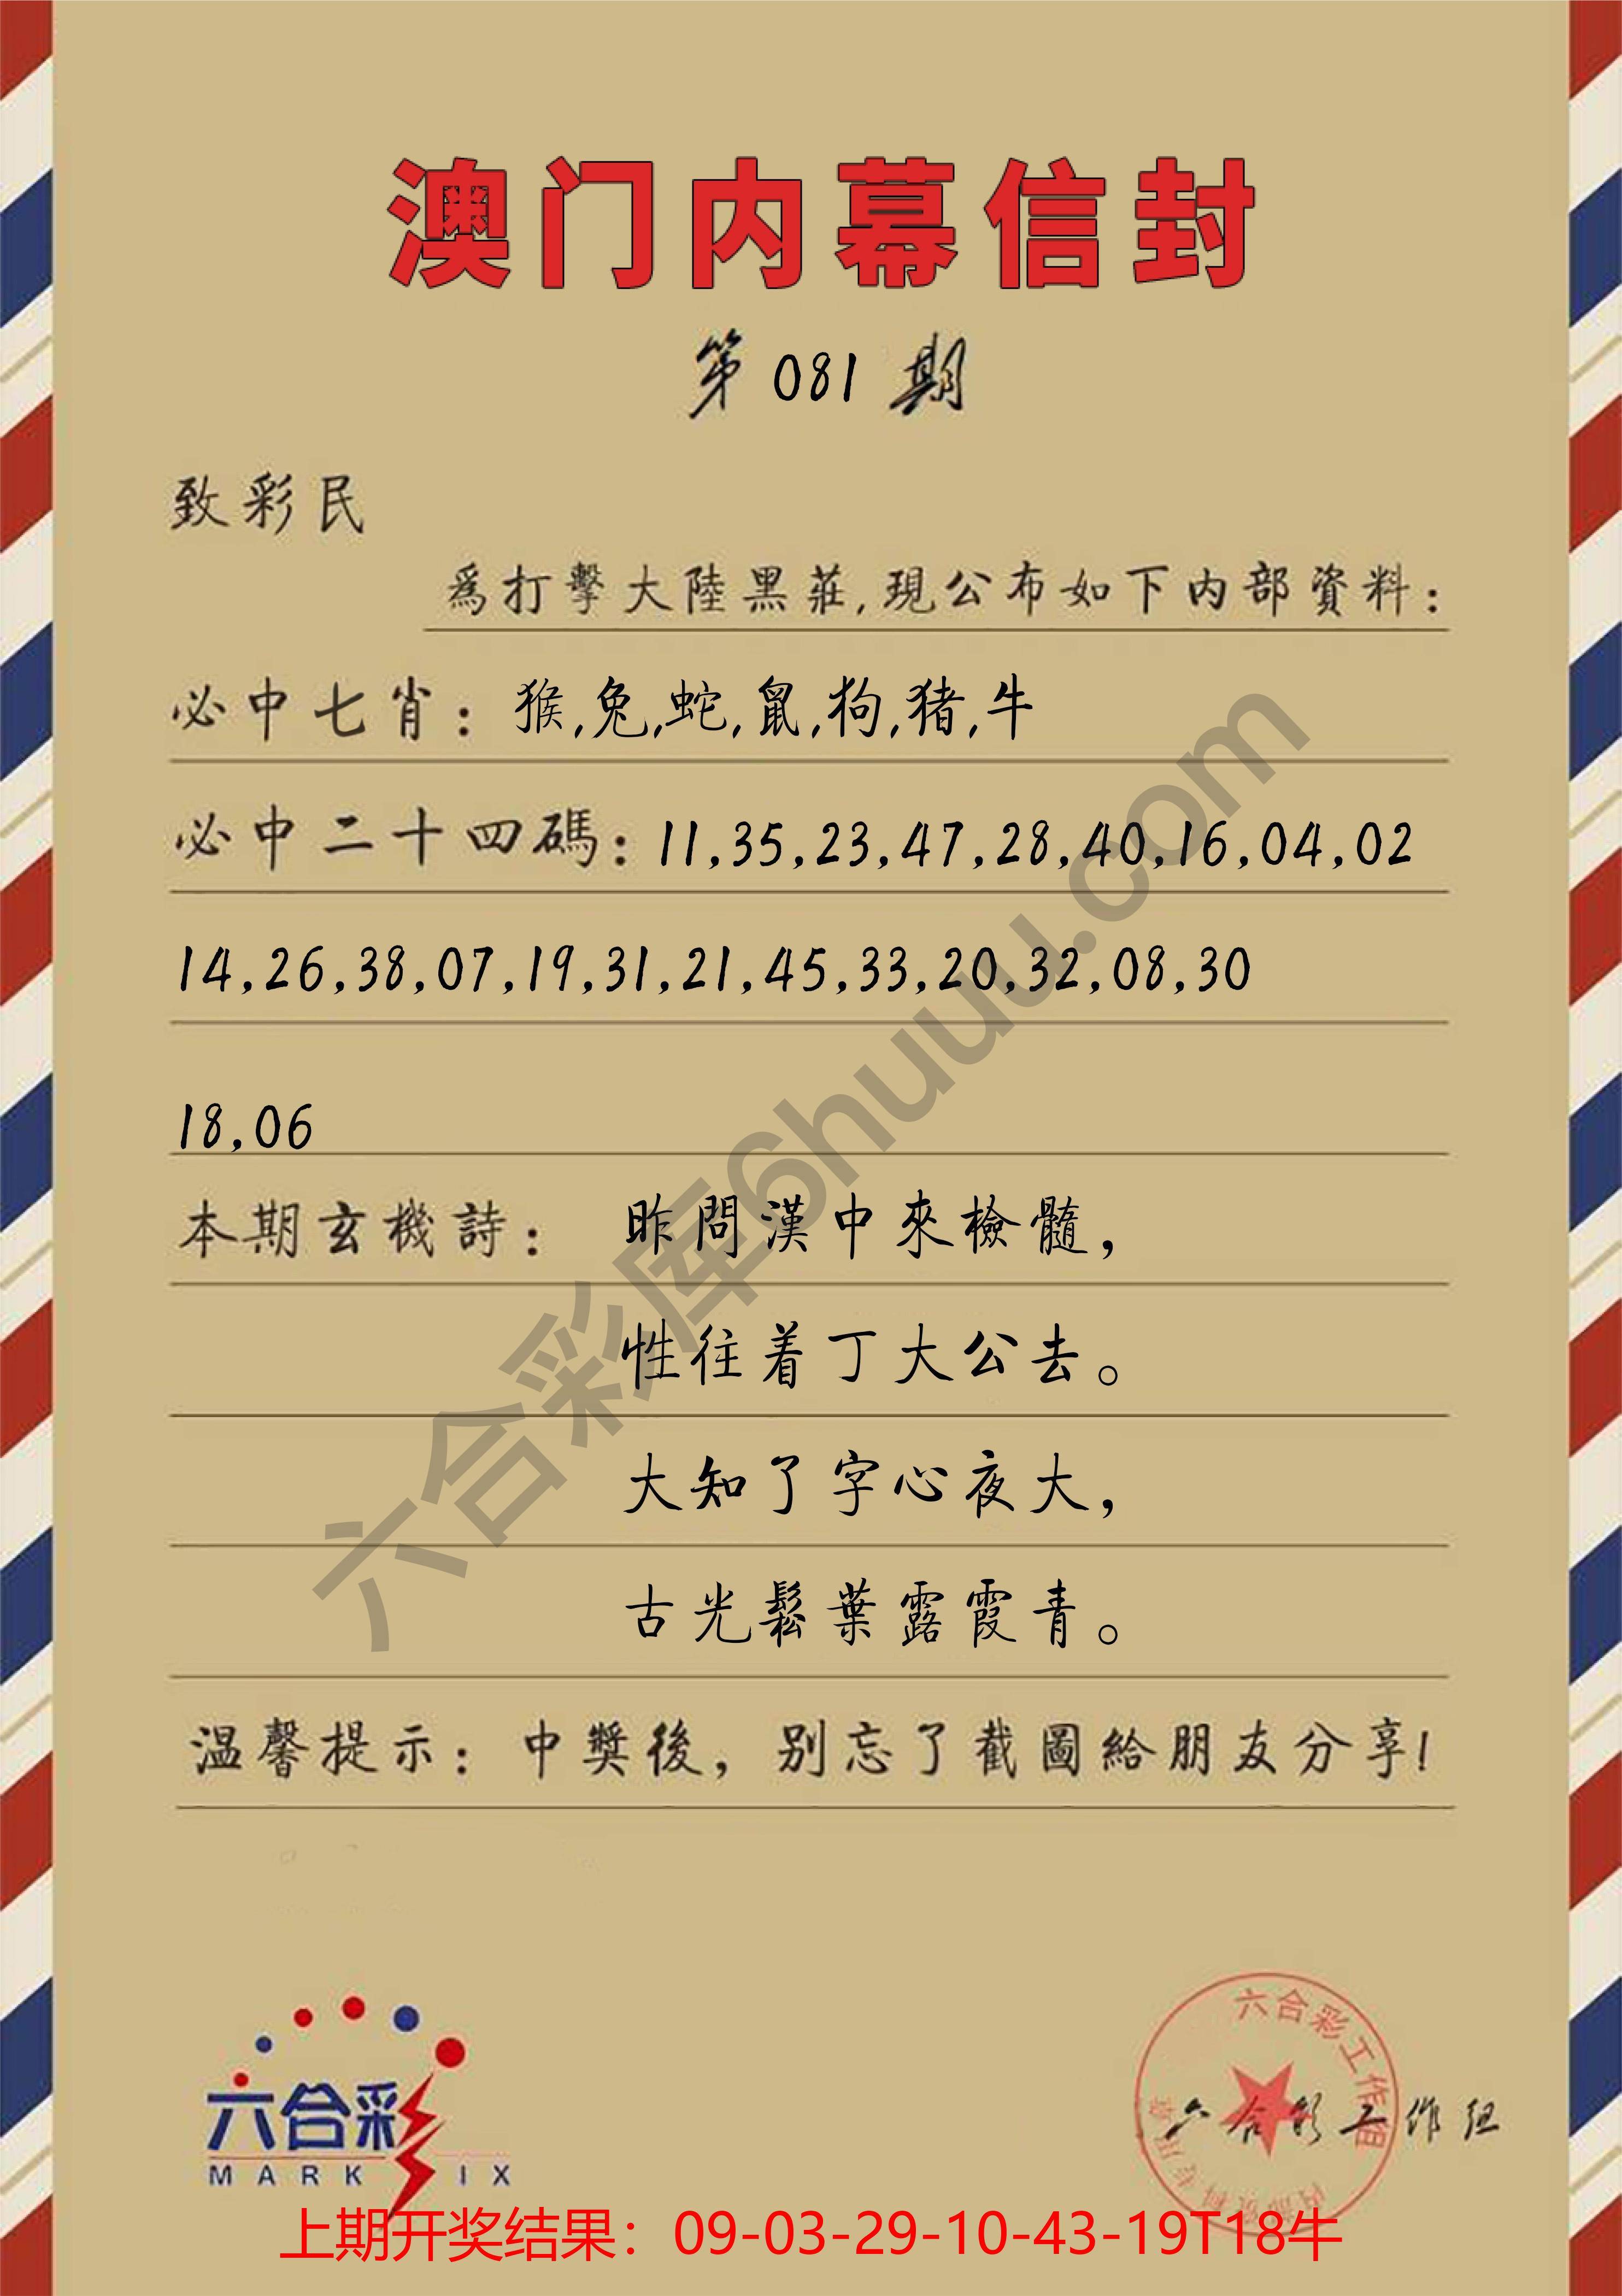 澳门内幕信封
第 081 期
致彩民
爲打擊大陸黑莊,現公布如下内部資料:
必中七肖: 猴,兔,蛇,鼠,狗,猪,牛
必中二十四碼: 11,35,23,47,28,40,16,04,02
14,26,38,07,19,31,21,45,33,20,32,08,30
18,06
本期玄機詩: 昨問漢中來檢髓,
性往着丁大公去。
大知了字心夜大,
古光鬆葉露霞青。
温馨提示: 中獎後, 别忘了截圖給朋友分享!
六合彩库6huuu.com
六合彩
MARK SIX
六合彩工作组
六合彩工作组
上期开奖结果：09-03-29-10-43-19T18牛